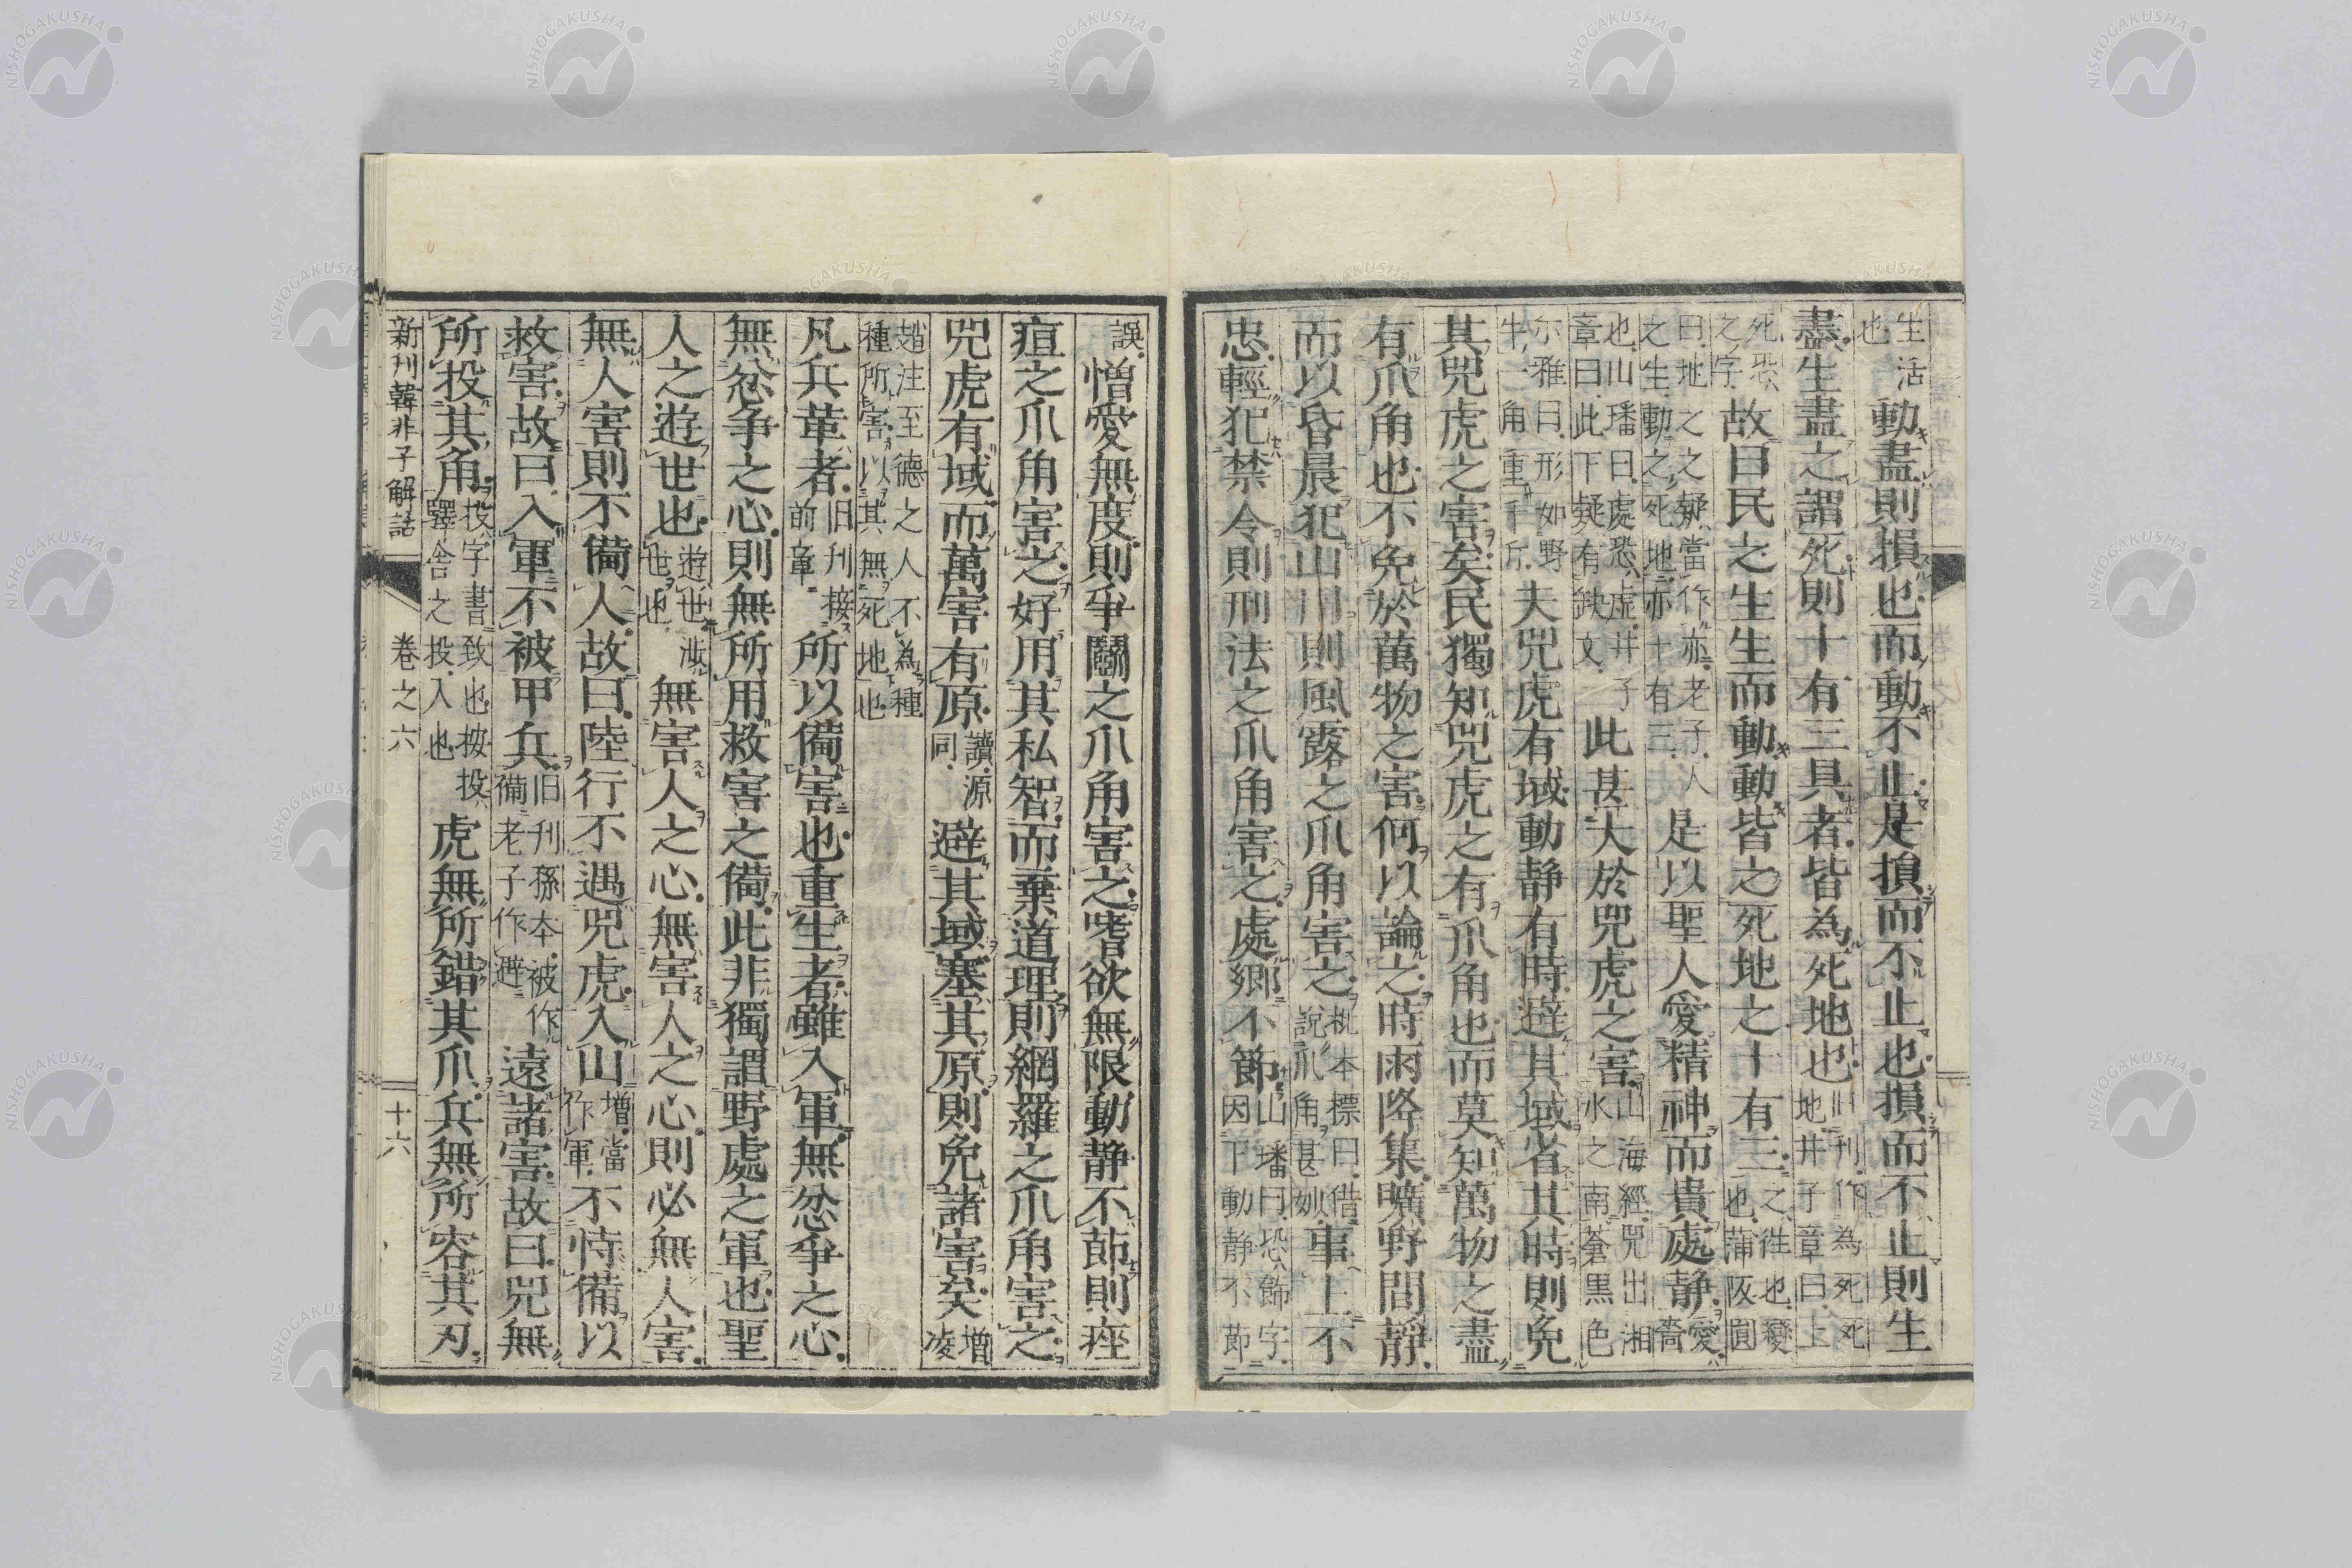 生活
也
動盡則損也而動不止是損而不止也損而不止則生
盡生盡之謂死則十有三具者皆為死地也
旧刊作為死死
地井子章曰上
死恐
之字
故曰民之生生而動動皆之死地之十有三
之徃也
也蒲阪圓
曰地之之疑當作亦老子人
之生動之死地亦十有三
是以聖人愛精神而貴處静
愛
嗇
也山璠曰處恐虚井子
章曰此下疑有缺文
此甚大於兕虎之害
山海經兕出湘
水之南蒼黒色
尓雅曰形如野
牛一角重千斤
夫兕虎有域動静有時避其域省其時則免
其兕虎之害矣民獨知兕虎之有爪角也而莫知萬物之盡
有爪角也不免於萬物之害何以論之時雨降集曠野間靜
而以昏晨犯山川則風露之爪角害之
桃本標曰借
説爪角甚妙
事上不
忠輕犯禁令則刑法之爪角害之處郷不節
山璠曰恐飾字
因下動静不節
誤
憎愛無度則爭鬭之爪角害之嗜欲無限動静不節則痤
疽之爪角害之好用其私智而棄道理則網羅之爪角害之
兕虎有域而萬害有原
讀源
同
避其域塞其原則免諸害矣
増
凌
趙注至德之人不為種
種所害以其無死地也
凡兵革者
旧刊接
前章
所以備害也重生者雖入軍無忿爭之心
無忿争之心則無所用救害之備此非獨謂野處之軍也聖
人之遊世也
遊世渉
世也
無害人之心無害人之心則必無人害
無人害則不備人故曰陸行不遇兕虎入山
増當
作軍
不恃備以
救害故曰入軍不被甲兵
旧刊孫本被作
備老子作避
遠諸害故曰兕無
所投其角
投字書致也按投
驛舎之投入也
虎無所錯其爪兵無所容其刃
新刊韓非子解詁
卷之六
十六
NISHOGAKUSHA